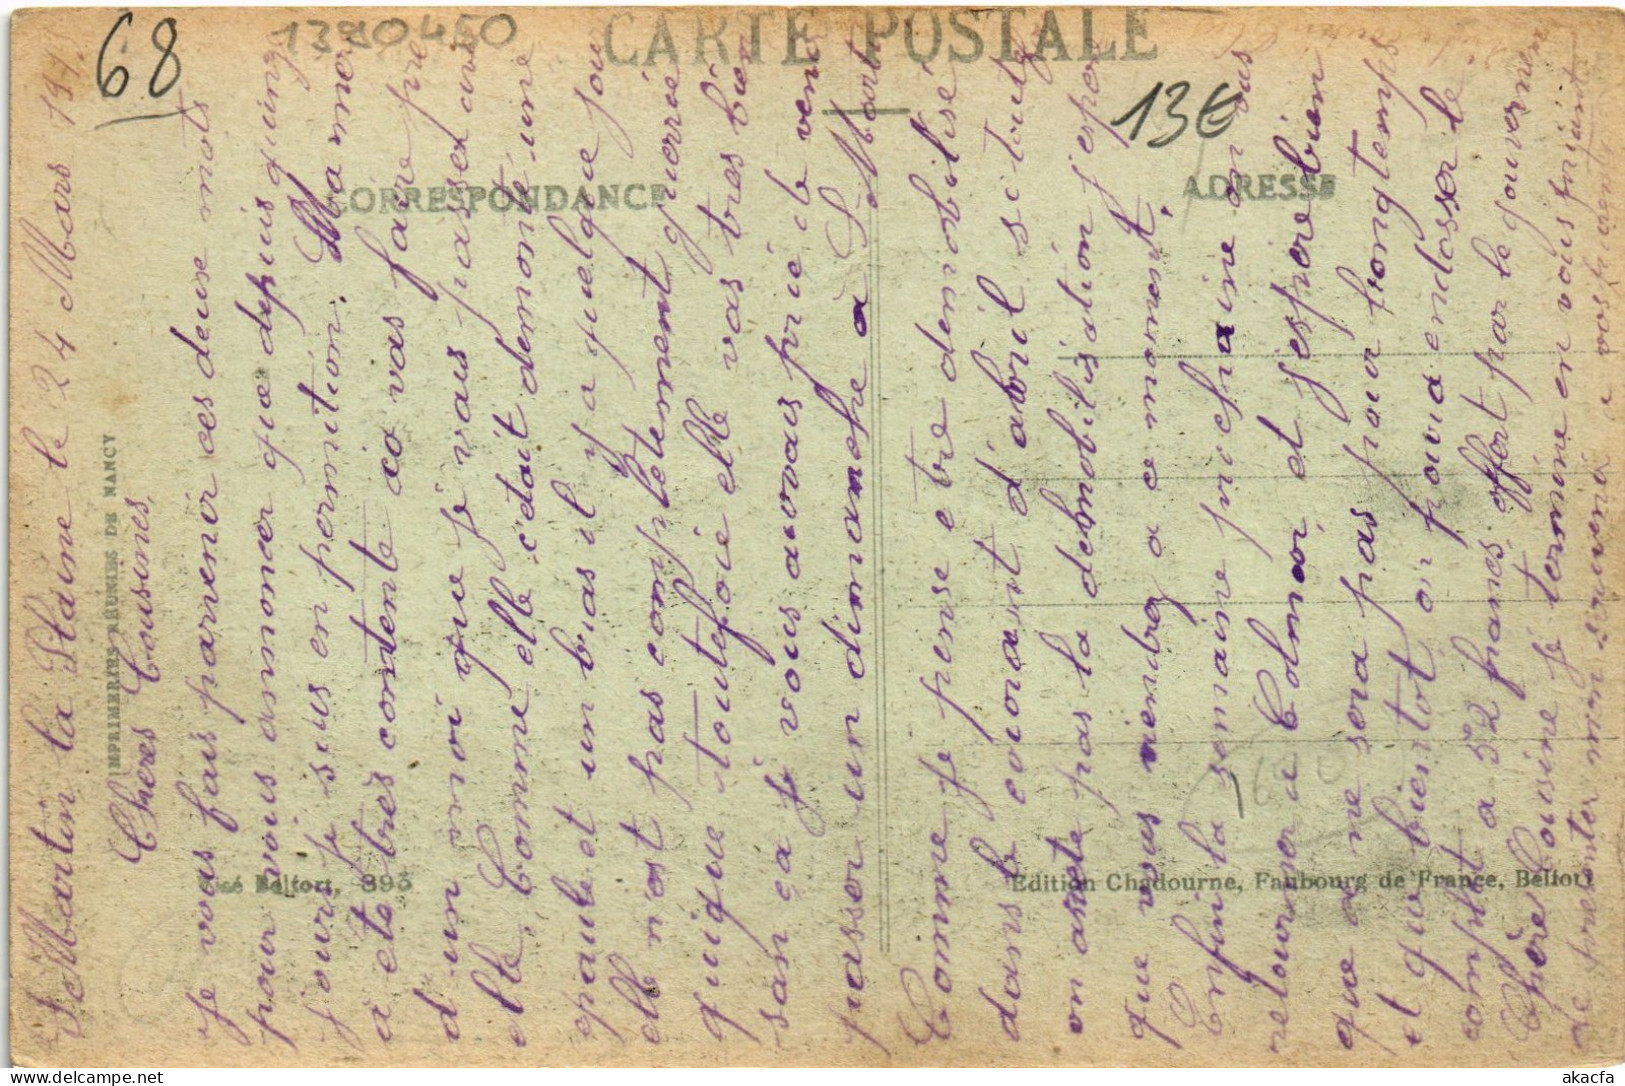 68
1320450
CARTE POSTALE
13€
CORRESPONDANCE
ADRESSE
IMPRIMERIES RÉUNIES DE NANCY
Visé Belfort, 393
Edition Chadourne, Faubourg de France, Belfort
St Martin la Plaine le 24 Mars 191
Cheres Cousines,
Je vous fais parvenir ces deux mots
pour vous annoncer que depuis quinze
jours je suis en permition. Ma mor
a ete tres contente ca vas faire pre
d'un moi que je vais passer avec
elle. Comme elle c'etait demonté une
epaule et un bras il y a quelque jou
elle n'est pas completement guerrie
quique toutefoie elle vas tres bien
san ça je vous aurais prié de venir
passer un dimanche a St Martin
Comme je pense etre demobilisé
dans le courant d'abril si toutef
on arrete pas la demobilisation j'esper
que vous viendrez a ce moment.
Enfin la semaine prochaine on vas
retourner a Colmar, et j'espere bien
que ca ne sera pas pour longtemps
et que bientot on poura endosser le
complet a 52 francs offert par le gouvernem
Chère Cousine je termine en vous priant
de presenter mon souvenir a vos parents
akacfa